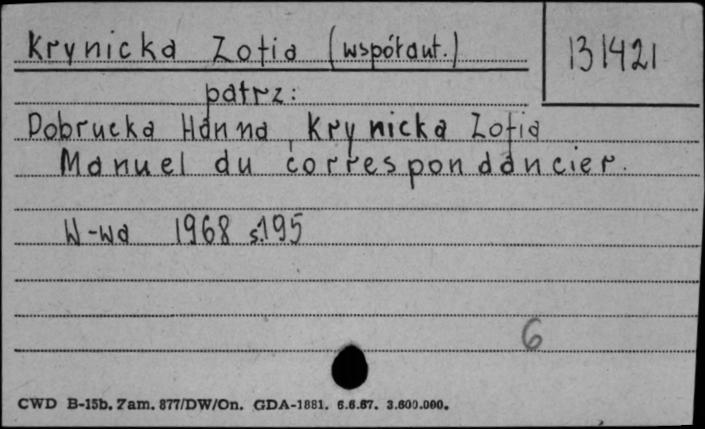 Krynicka Zofia (współaut.) 131421
patrz:
Dobrucka Hanna, Krynicka Zofia
Manuel du correspondancier.
W-wa 1968 s.195
6
CWD B-15b. Zam. 877/DW/On. GDA-1881. 6.6.67. 3.600.000.